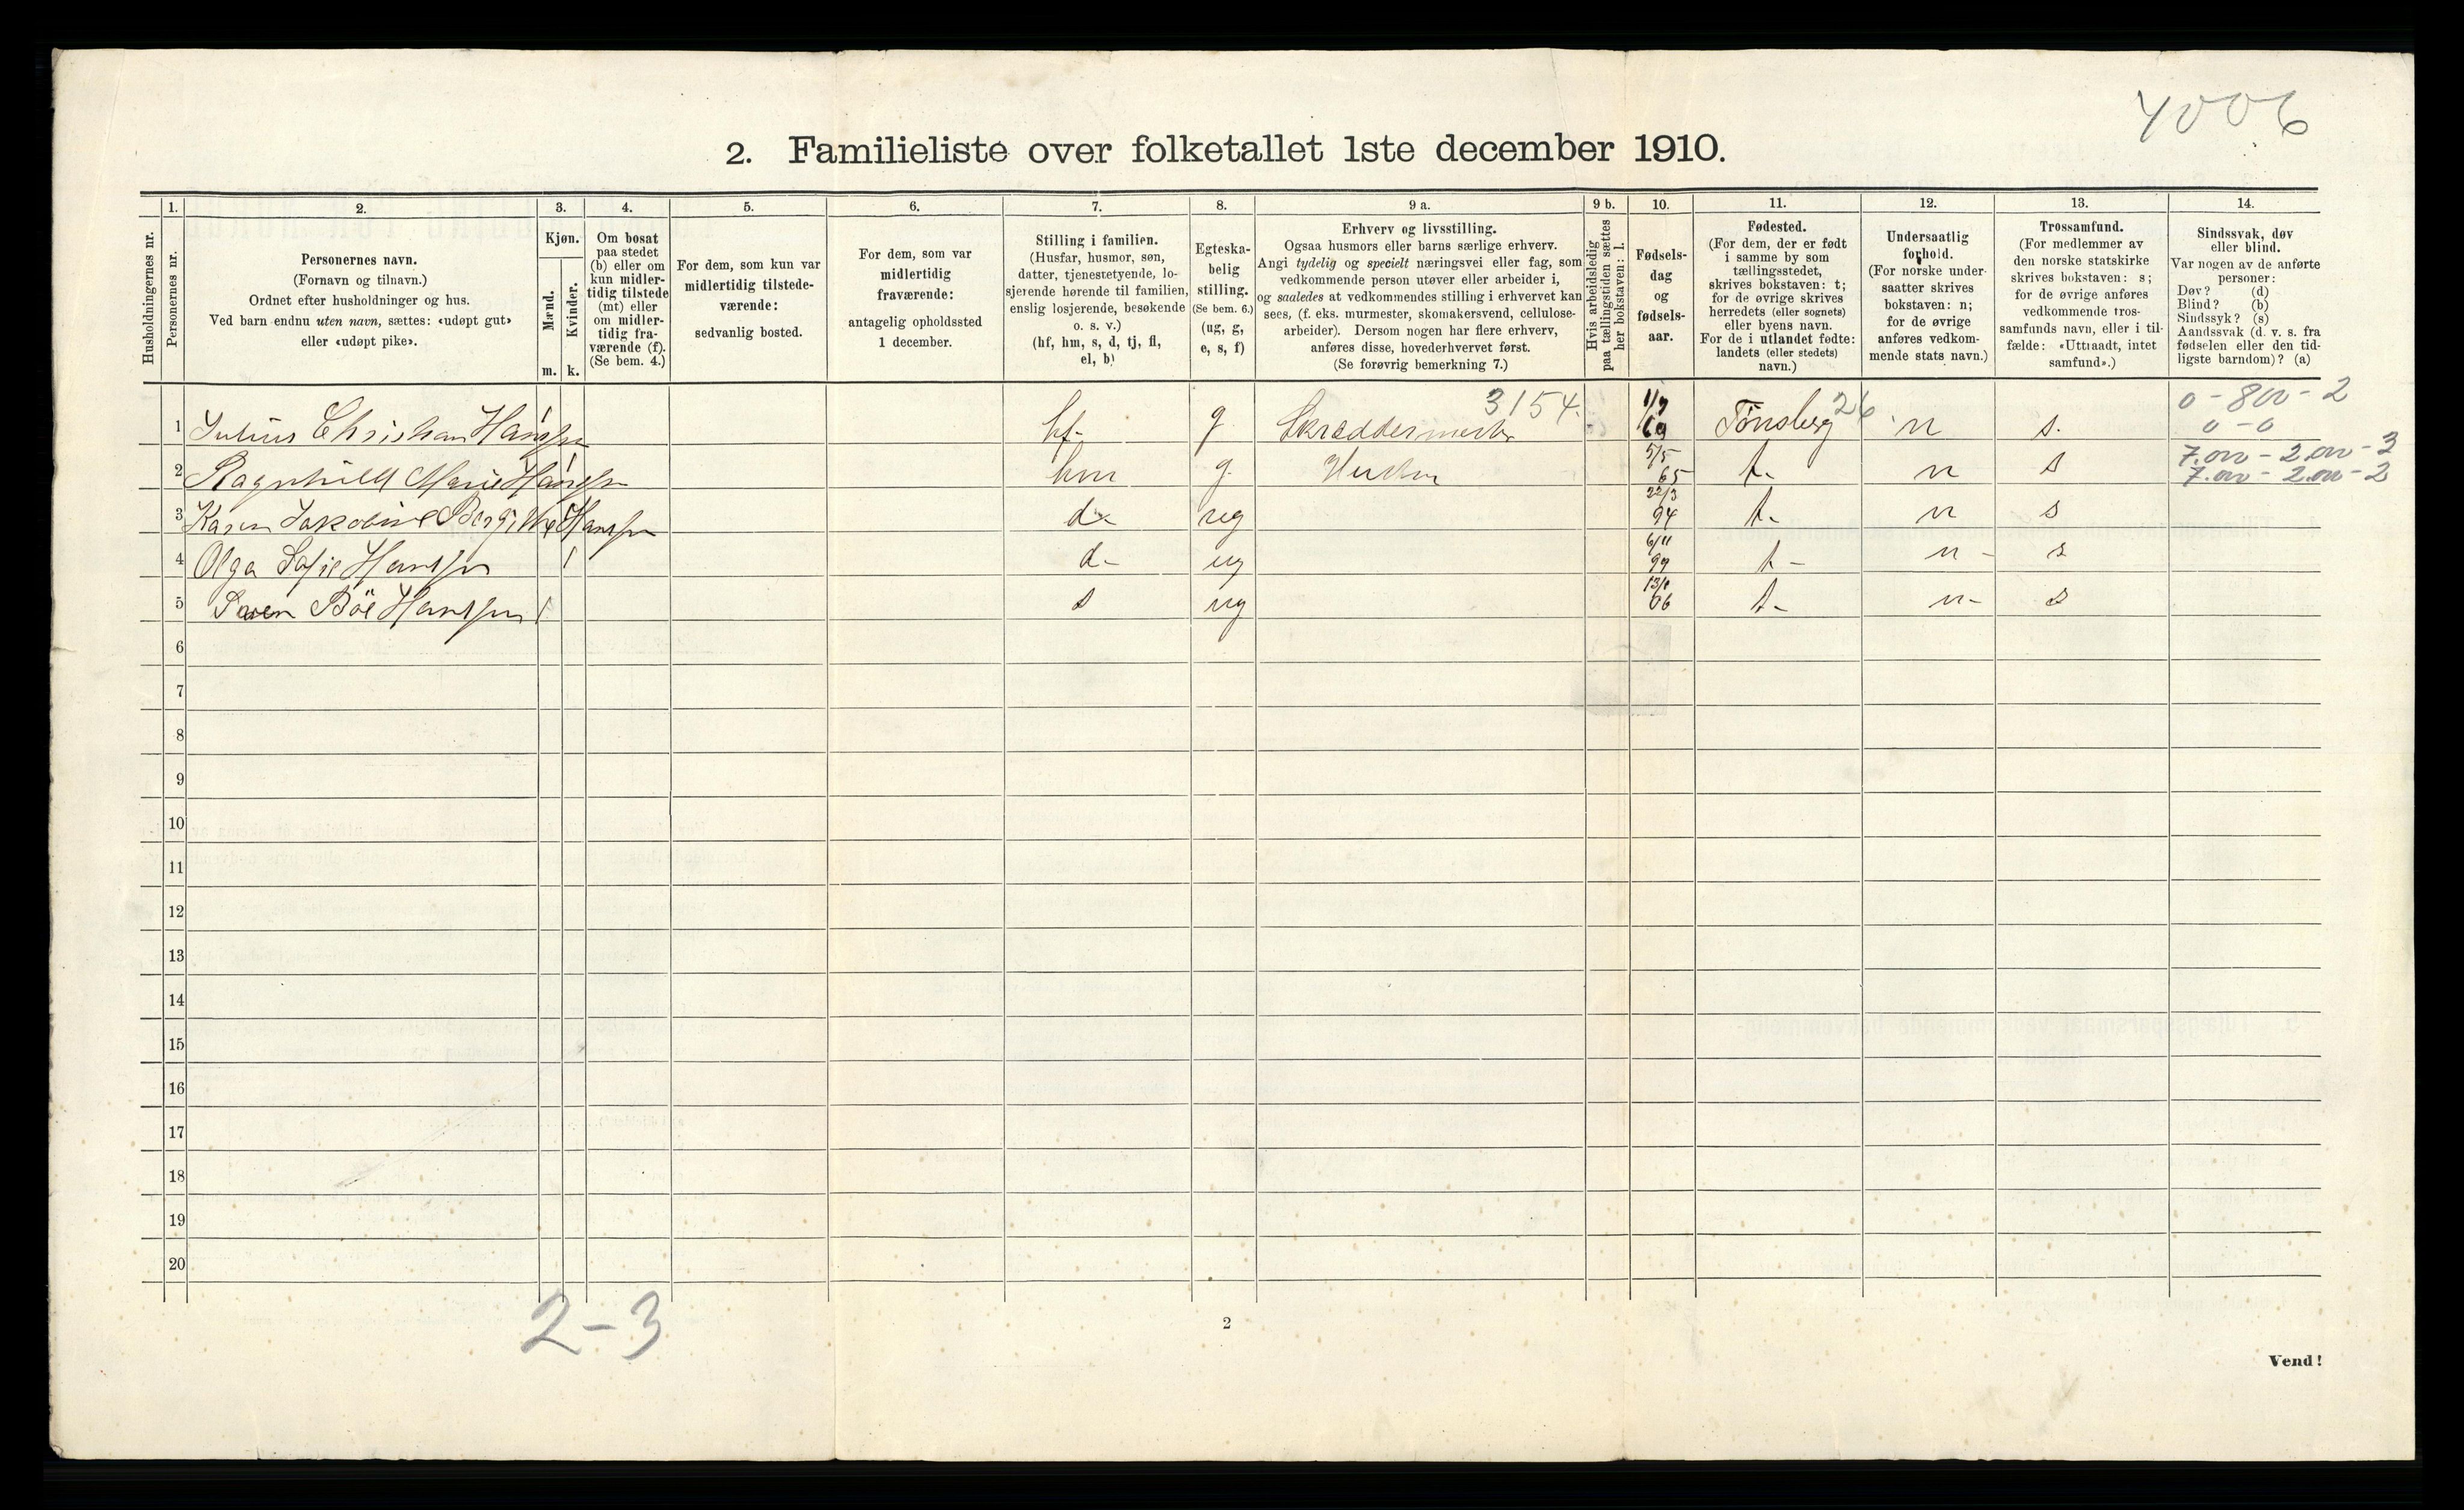 4006
2. Familieliste over folketallet 1ste december 1910.
1. 2. 3. 4. 5. 6. 7. 8. 9 a. 9 b. 10. 11. 12. 13. 14.
Husholdningernes nr.
Personernes nr.
Personernes navn.
(Fornavn og tilnavn.)
Ordnet efter husholdninger og hus.
Ved barn endnu uten navn, sættes: «udøpt gut»
eller «udøpt pike».
Kjøn.
Mænd.
m.
Kvinder.
k.
Om bosat
paa stedet
(b) eller om
kun midler-
tidig tilstede
(mt) eller
om midler-
tidig fra-
værende (f).
(Se bem. 4.)
For dem, som kun var
midlertidig tilstede-
værende:
sedvanlig bosted.
For dem, som var
midlertidig
fraværende:
antagelig opholdssted
1 december.
Stilling i familien.
(Husfar, husmor, søn,
datter, tjenestetyende, lo-
sjerende hørende til familien,
enslig losjerende, besøkende
o. s. v.)
(hf, hm, s, d, tj, fl,
el, b)
Egteska-
belig
stilling.
(Se bem. 6.)
(ug, g,
e, s, f)
Erhverv og livsstilling.
Ogsaa husmors eller barns særlige erhverv.
Angi tydelig og specielt næringsvei eller fag, som
vedkommende person utøver eller arbeider i,
og saaledes at vedkommendes stilling i erhvervet kan
sees, (f. eks. murmester, skomakersvend, cellulose-
arbeider). Dersom nogen har flere erhverv,
anføres disse, hovederhvervet først.
(Se forøvrig bemerkning 7.)
Hvis arbeidsledig
paa tællingstiden sættes
her bokstaven: l.
Fødsels-
dag
og
fødsels-
aar.
Fødested.
(For dem, der er født
i samme by som
tællingsstedet,
skrives bokstaven: t;
for de øvrige skrives
herredets (eller sognets)
eller byens navn.
For de i utlandet fødte:
landets (eller stedets)
navn.)
Undersaatlig
forhold.
(For norske under-
saatter skrives
bokstaven: n;
for de øvrige
anføres vedkom-
mende stats navn.)
Trossamfund.
(For medlemmer av
den norske statskirke
skrives bokstaven: s;
for de øvrige anføres
vedkommende tros-
samfunds navn, eller i til-
fælde: «Uttraadt, intet
samfund».)
Sindssvak, døv
eller blind.
Var nogen av de anførte
personer:
Døv? (d)
Blind? (b)
Sindssyk? (s)
Aandssvak (d. v. s. fra
fødselen eller den tid-
ligste barndom)? (a)
3154. 26 0 - 800 - 2
1 Julius Christian Hanssen 1 hf- g Skræddermester 1/7 69 Tønsberg n s. 0 - 0
7.000 - 2.000 - 3
2 Ragnhild Marie Hanssen 1 hm g 5/5 65 t- n s 7.000 - 2.000 - 2
3 Karen Jakobine Bergithe Hanssen d- ug 22/3 94 t- n s
4 Olga Sofie Hanssen 1 d- ug 6/11 99 t - n - s
5 Søren Böe Hanssen 1 s ug 06 t- n- s
6
7
8
9
10
11
12
13
14
15
16
17
18
19
20
2-3
2
Vend!